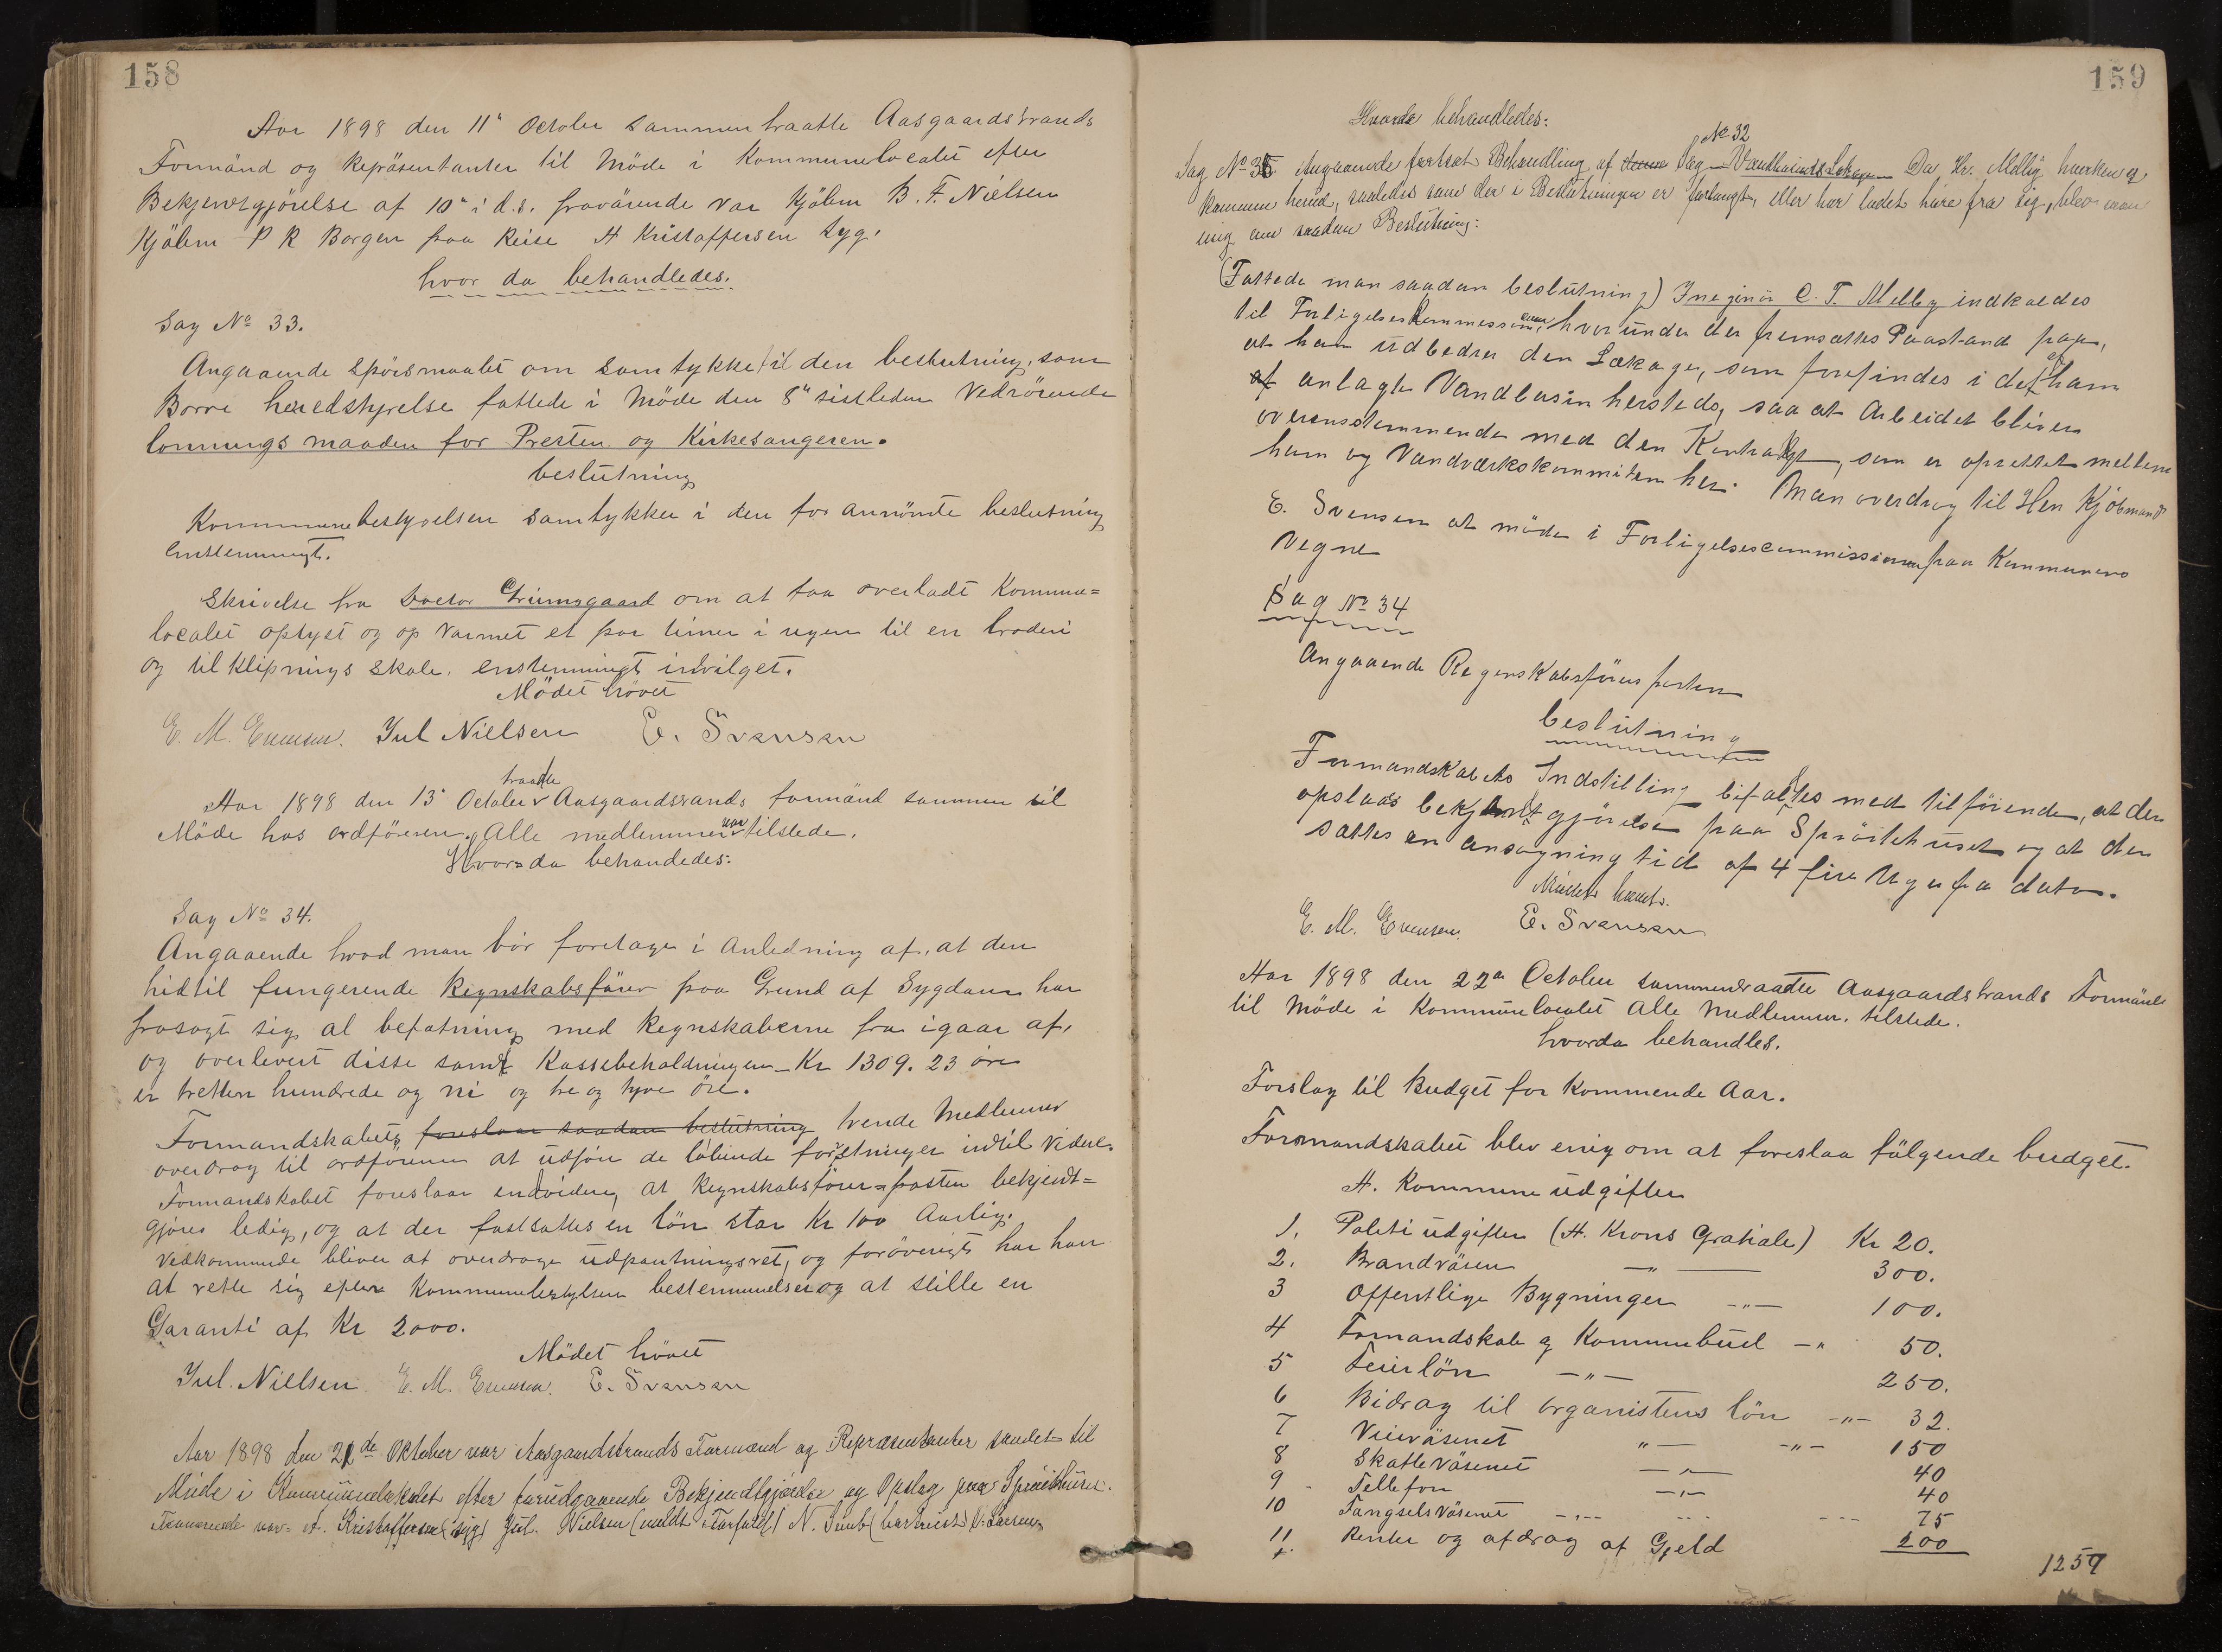 158
Aar 1898 den 11' October sammentraatte Aasgaardstrands
Formänd og Repräsentanter til Möde i Kommunelocalet efter
Bekjentgjörelse af 10' i d.s. fraværende var Kjöbm B. F. Nielsen
Kjöbm P R Borgen paa Reise A Kristoffersen Syg.
hvor da behandledes.
Sag No 33.
Angaaende Spörsmaalet om Samtykke til den beslutning, som
Borre heredstyrelse fattede i Möde den 8" sistleden Vedrörende
lonnings maaden for Presten og Kirkesangeren.
beslutning
Kommunebestyrelsen samtykker i den for annömte beslutning
enstemmigt.
Skrivelse fra Doctor Grimsgaard om at faa overladt Kommune=
localet oplyst og op Varmet et par timer i ugen til en broderi
og tilklipnings skole. enstemmigt indvilget.
Mödet hövet
E. M. Evensen. Jul Nielsen E. Svensen
traadte
Aar 1898 den 13' October Aasgaardstrands formänd sammen til
Möde hos ordföreren. Alle medlemmer var tilstede.
Hvor da behandedes:
Sag No 34.
Angaaende hvad man bör foretage i Anledning af, at den
hidtil fungerende Regnskabsförer paa Grund af Sygdom har
frasagt sig al befatning med Regnskaberne fra igaar af,
og overlevert disse samt Kassebeholdningen Kr 1309. 23 öre
er tretten hundrede og ni og tre og tyve öre.
Formandskabets foreslaar saadan beslutning trende Medlemmer
overdrog til ordföreren at udföre de löbende forretninger indtil Videre.
Formandskabet foreslaar endvidere, at Regnskabsförer=posten bekjendt=
gjöres ledig, og at der fastsattes en lön stor Kr 100 Aarlig.
Vedkommende bliver at overdrage udpantningsret, og foröverigt har han
at rette sig efter Kommunebestylsen bestemmelser og at stille en
Garanti af Kr 2000.
Mödet hövet
Jul. Nielsen E. M. Evensen. E. Svensen
Aar 1898 den 21de Oktober var Aasgaardstrands Formænd og Repræsentanter samlet til
Möde i Kommunelokalet efter forudgaaende Bekjendtgjörelse og Opslag paa Spröitehuset.
Fraværende var: A. Kristoffersen (syg) Jul. Nielsen (meldt Forfald) N. (bortreist) Larsen
159
Hvorda behandledes:
No 32
Sag No 35 Angaaende fortsat Behandling af denne Sag Vandbasinets Lekage Da Hr. Melby hverken er
kommen herned, saaledes som der i Beslutningen er forlangt, eller har ladet höre fra sig, blev man
enig om saadan Beslutning:
(Fattede man saadan beslutning) Ingeniör C. T. Melby indkaldes
til Forligelseskommissionen, hvorunder der fremsættes Paastand paa,
at han udbedrer den Lækage, som forefindes i det af ham
af anlagte Vandbasin hersteds, saa at Arbeidet bliver
overensstemmende med den Kontragt, som er oprettet mellem
ham og Vandværkskommiteen her. Man overdrog til Herr Kjöbmand
E. Svensen at möde i Forligelsescommissionen paa Kommunens
Vegne
Sag No 34
Angaaende Regnskabsförerposten
beslutning
Formandskabets Indstilling bifaltes med tilföiende, at der
opslaas bekjentgjörelse paa Spröitehuset og at der
sættes en ansögning tid af 4 fire Uger fra dato.
Mödet hævet.
E. M. Evensen. E. Svensen
Aar 1898 den 22a October sammentraatte Aasgaardstrands Formänd
til Möde i Kommunelocalet Alle Medlemmer. tilstede.
hvorda behandles.
Forslag til Budget for kommende Aar.
Formandskabet blev enig om at foreslaa fölgende budget.
A. Kommune udgifter
1. Politi udgifter (A. Krons Gratiale) Kr 20.
2. Brandväsen —"— 300.
3 Offentlige Bygninger —"— 100.
4 Formandskab og Kommunebud —" 50.
5 Feierlön —"— 250.
6 Bidrag til organistens lön —"— 32.
7 Veieväsenet "— —"— 150
8 Skatteväsenet —"— 40
9 Tellefon —"— 40
10 Fängselsväsenet —"— 75
11 Renter og afdrag af Gjeld 200
1257